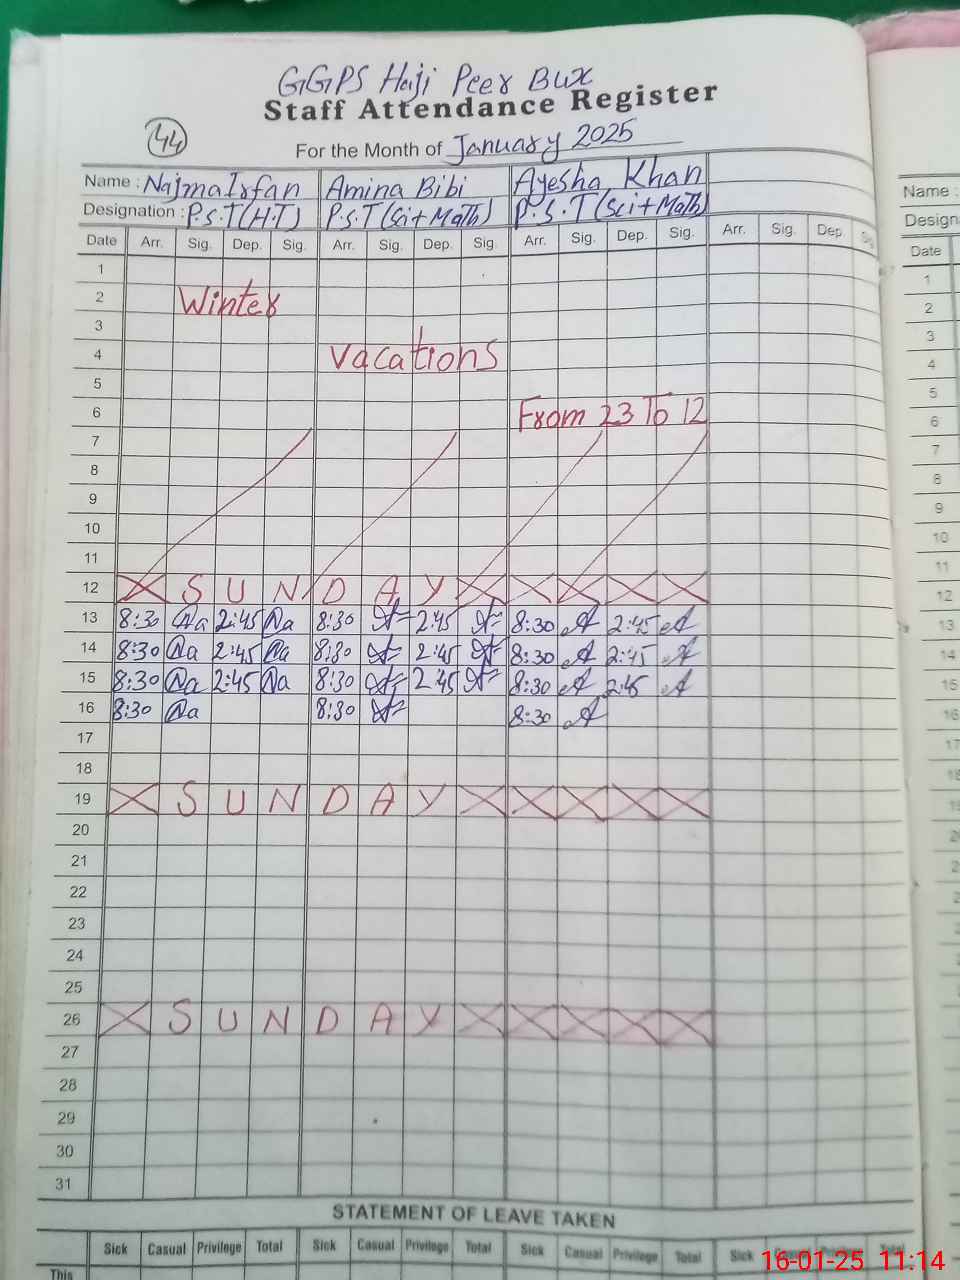 GGPS Haji Peer Bux
Staff Attendance Register
44
For the Month of January 2025
Name : Najma Irfan Amina Bibi Ayesha Khan
Designation : P.S.T (H.T) P.S.T (Sci+Math) P.S.T (Sci+Math)
Date Arr. Sig. Dep. Sig. Arr. Sig. Dep. Sig. Arr. Sig. Dep. Sig. Arr. Sig. Dep. Sig.
1
2 Winter
3
4 Vacations
5
6 From 23 To 12
7
8
9
10
11
12 X S U N D A Y X X X X X
13 8:30 Na 2:45 Na 8:30 A 2:45 A 8:30 A 2:45 A
14 8:30 Na 2:45 Na 8:30 A 2:45 A 8:30 A 2:45 A
15 8:30 Na 2:45 Na 8:30 A 2:45 A 8:30 A 2:45 A
16 8:30 Na 8:30 A 8:30 A
17
18
19 X S U N D A Y X X X X X
20
21
22
23
24
25
26 X S U N D A Y X X X X X
27
28
29
30
31
STATEMENT OF LEAVE TAKEN
Sick Casual Privilege Total Sick Casual Privilege Total Sick Casual Privilege Total Sick
This
Name :
Date
1
2
3
4
5
6
7
8
9
10
11
12
13
14
15
16
17
16-01-25 11:14